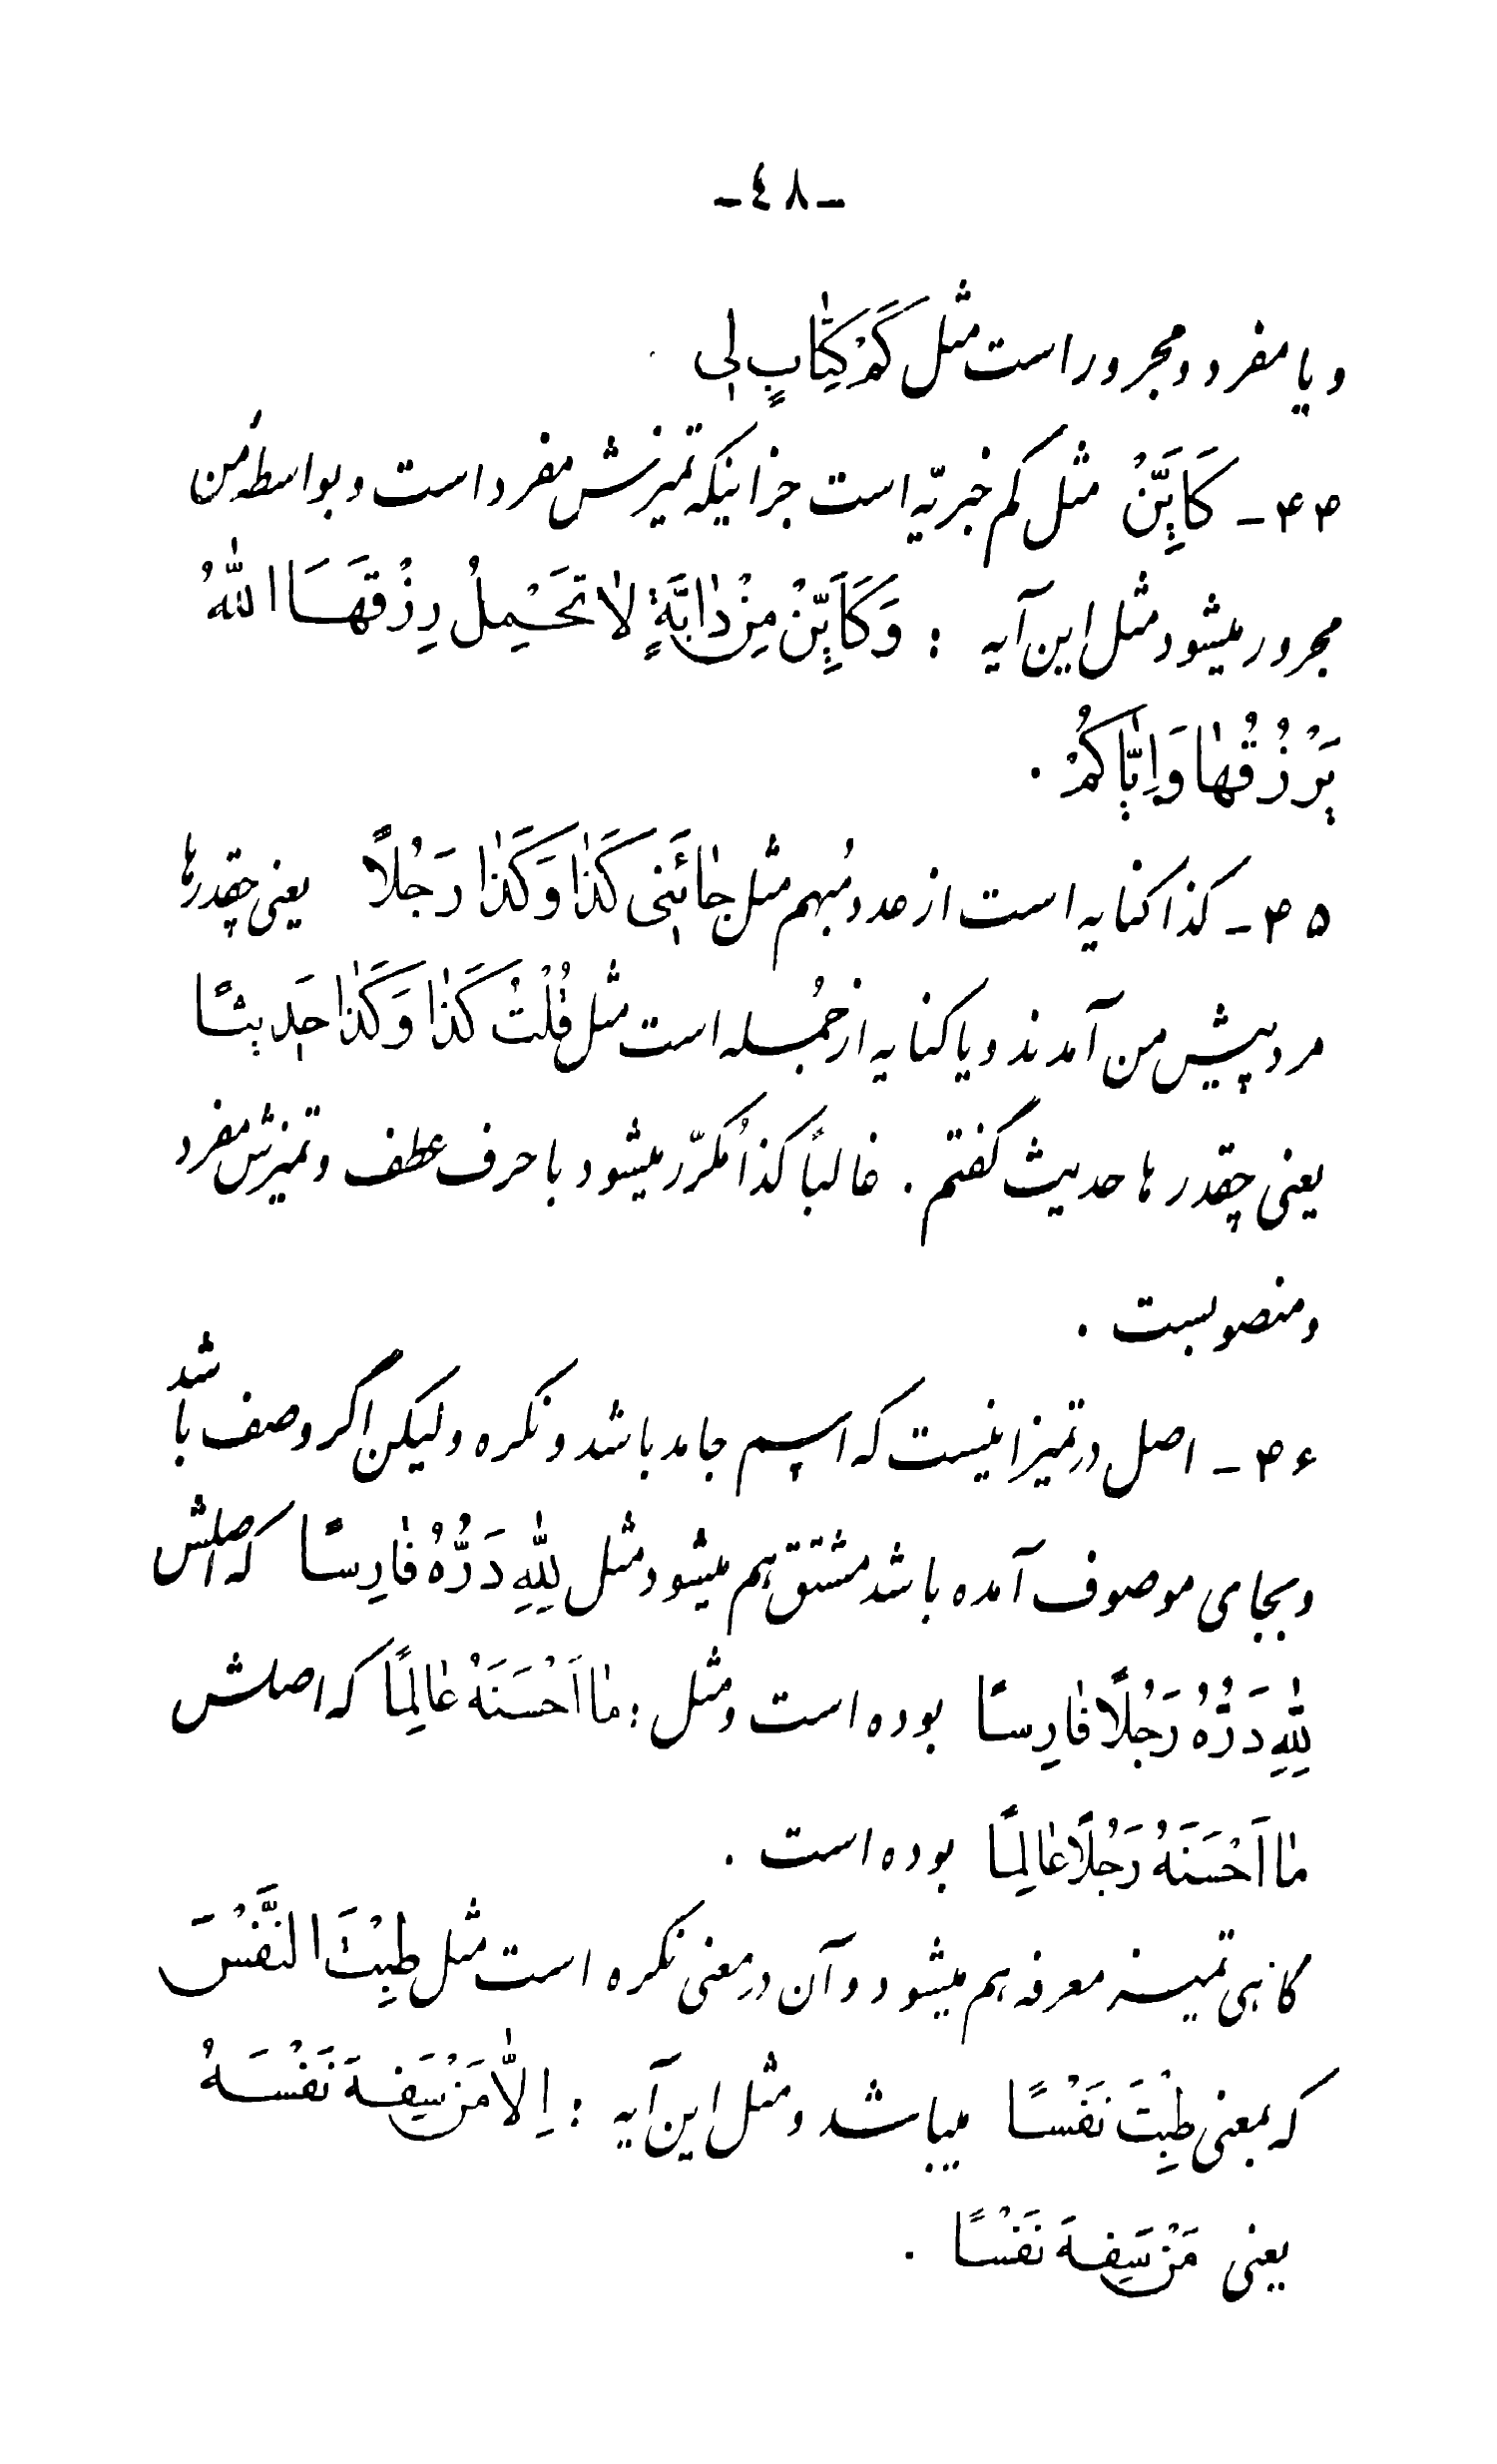 -٤٨-
و یا مفرد و مجرور است مثل كَمْ كِتٰابٍ لی
۴۴- كَاَيِّنْ مثل کم خبریّه است جز اینکه تمیزش مفرد است و بواسطهٔ من
مجرور میشود مثل این آیه : وَكَاَيِّنْ مِنْ دٰابَّةٍ لاٰ تَحْمِلُ رِزْقَهَا اللّٰهُ
يَرْزُقُهٰا وَاِيّٰاكُمْ .
۴۵- کذا کنایه است از عدد مُبهم مثل جٰائَنی كَذٰا وَ كَذٰا رَجُلاً یعنی چقدرها
مرد پیش من آمدند و یا کنایه از جُمله است مثل قُلْتُ كَذٰا وَ كَذٰا حَديثًا
یعنی چقدرها حدیث گفتم . غالباً کذا مُکرّر میشود با حرف عطف و تمیزش مفرد
و منصوبست .
۴۶- اصل در تمیز اینست که اسم جامد باشد و نکره و لیکن اگر وصف باشد
و بجای موصوف آمده باشد مشتق هم میشود مثل لِلّٰهِ دَرُّهُ فٰارِسًا که اصلش
لِلّٰهِ دَرُّهُ رَجُلاً فٰارِسًا بوده است و مثل : مٰا اَحْسَنَهُ عٰالِمًا که اصلش
مٰا اَحْسَنَهُ رَجُلاً عٰالِمًا بوده است .
گاهی تمیز معرفه هم میشود و آن در معنی نکره است مثل طِبْتَ النَّفْسَ
که بمعنی طِبْتَ نَفْسًا میباشد و مثل این آیه : اِلاّٰ مَنْ سَفِهَ نَفْسَهُ
یعنی مَنْ سَفِهَ نَفْسًا .